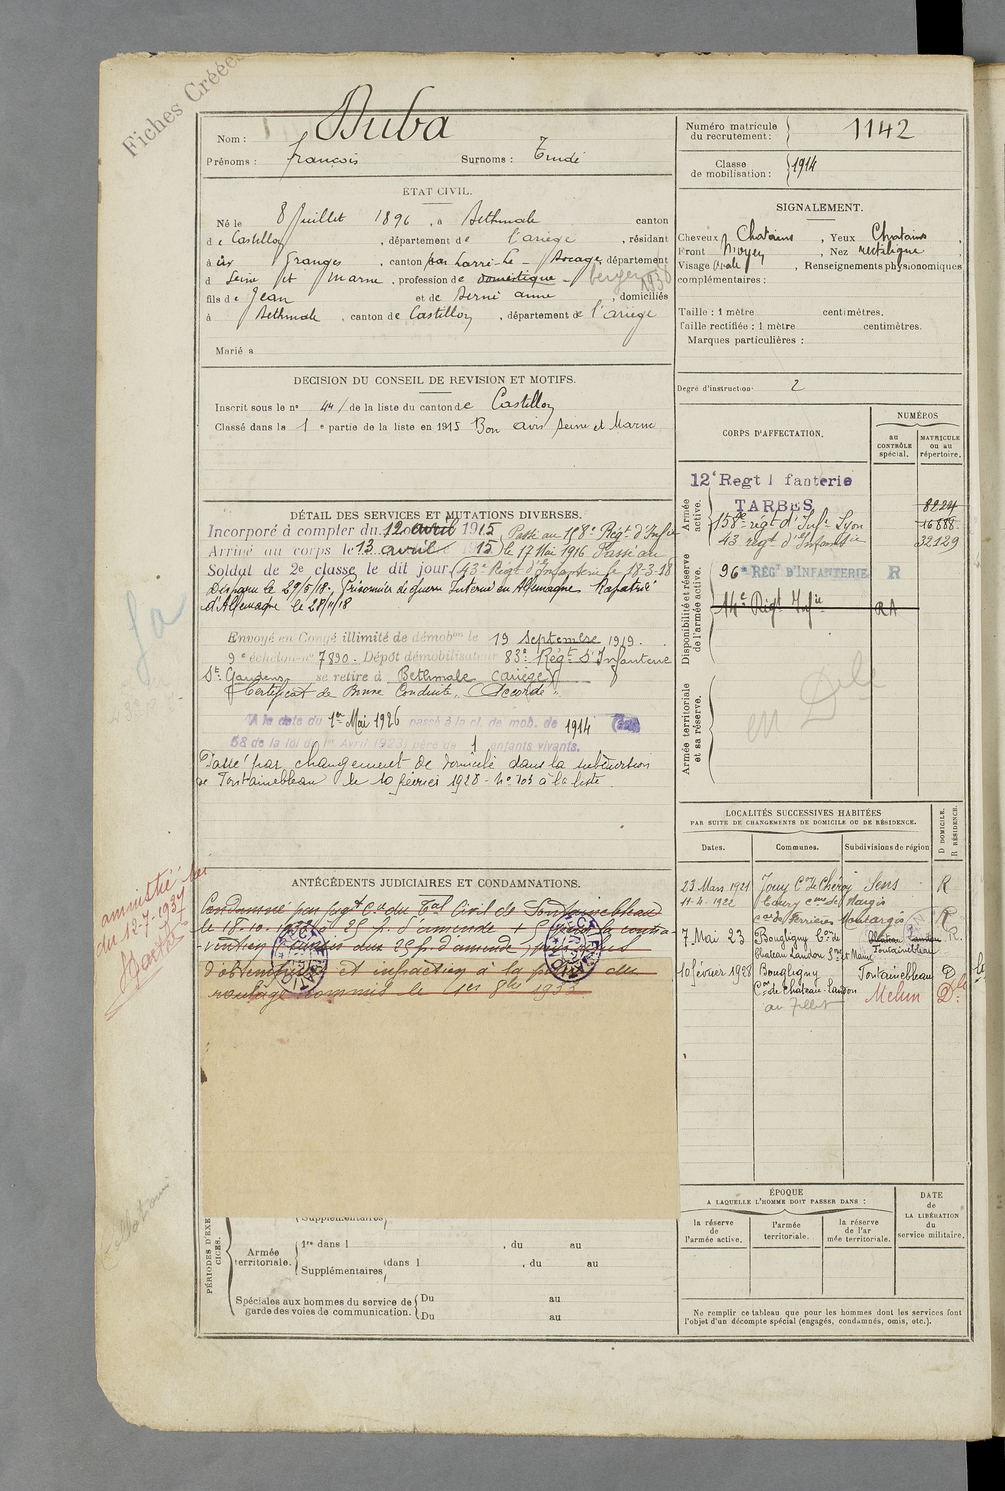 Fiches Créées
Nom : Buba
Prénoms : François Surnoms :
ÉTAT CIVIL.
Né le 8 Juillet 1896, à Bethmale canton
de Castillon, département de l'ariège, résidant
à Granges, canton Bocage, département
d Seine et Marne, profession de domestique berger 1936
fils de Jean et de Servié anne, domiciliés
à Bethmale, canton de Castillon, département de l'ariège
Marié à
DÉCISION DU CONSEIL DE REVISION ET MOTIFS.
Inscrit sous le n° 44 de la liste du canton de Castillon
Classé dans la 1e partie de la liste en 1915 Bon avis Seine et Marne
DÉTAIL DES SERVICES ET MUTATIONS DIVERSES.
Incorporé à compter du 12 avril 1915 Passé au 158e Régt d'Infie
Arrivé au corps le 13 avril 1915 le 17 Mai 1916 Passé au
Soldat de 2e classe le dit jour 43e Régt d'Infanterie le 18-3-18
Disparu le 29/5/18. Prisonnier de guerre Interné en Allemagne Rapatrié
d'Allemagne le 28/11/18
Envoyé en Congé illimité de démobon le 19 Septembre 1919.
9e échelon n° 7890. Dépôt démobilisateur 83e Régt d'Infanterie
St Gaudens se retire à Bethmale (ariège)
Certificat de Bonne Conduite "Accordé"
A la date du 1er Mai 1926 passé à la cl. de mob. de 1914 (art
58 de la loi du 1er Avril 1923) père de 1 enfants vivants.
Passé par changement de domicile dans la subdivision
de Fontainebleau le 10 février 1928 - N° 703 à la liste
ANTÉCÉDENTS JUDICIAIRES ET CONDAMNATIONS.
Condamné par jugt Cre du Tal Civil de Fontainebleau
le 18.10.1933 à 25 f. d'amende
d'amende
et infraction à la police du
roulage commis le 1er 1933
amnistié
du 12-7-1937
PÉRIODES D'EXERCICES.
Supplémentaires
Armée territoriale. 1re dans l , du au
Supplémentaires dans l , du au
Spéciales aux hommes du service de garde des voies de communication. Du au
Du au
Numéro matricule du recrutement : 1142
Classe de mobilisation : 1914
SIGNALEMENT.
Cheveux Chatains, Yeux Chatains,
Front Moyen, Nez rectiligne,
Visage Ovale, Renseignements physionomiques
complémentaires :
Taille : 1 mètre centimètres.
Taille rectifiée : 1 mètre centimètres.
Marques particulières :
Degré d'instruction 2
CORPS D'AFFECTATION.
NUMÉROS
au CONTRÔLE spécial.
MATRICULE ou au répertoire.
Armée active.
12e Regt I fanterie
TARBES 8224
158e régt d'Infie Lyon 16888
43 régt d'Infanterie 32129
Disponibilité et réserve de l'armée active.
96e RÉGt D'INFANTERIE R
14e Régt Infie RA
Armée territoriale et sa réserve.
LOCALITÉS SUCCESSIVES HABITÉES
PAR SUITE DE CHANGEMENTS DE DOMICILE OU DE RÉSIDENCE.
Dates. Communes. Subdivisions de région D DOMICILE. R RÉSIDENCE.
23 Mars 1921 Jouy Con de Chéroy Sens R
11-4-1922 Nargis
Con de Ferrières Montargis R
7 Mai 23 Bougligny Con de Château Landon R
Chateau Landon Sne et Marne Fontainebleau
10 février 1928 Bougligny Fontainebleau D
Con de Château-Landon Melun D
ÉPOQUE
A LAQUELLE L'HOMME DOIT PASSER DANS :
la réserve de l'armée active.
l'armée territoriale.
la réserve de l'armée territoriale.
DATE de LA LIBÉRATION du service militaire.
Ne remplir ce tableau que pour les hommes dont les services font
l'objet d'un décompte spécial (engagés, condamnés, omis, etc.).